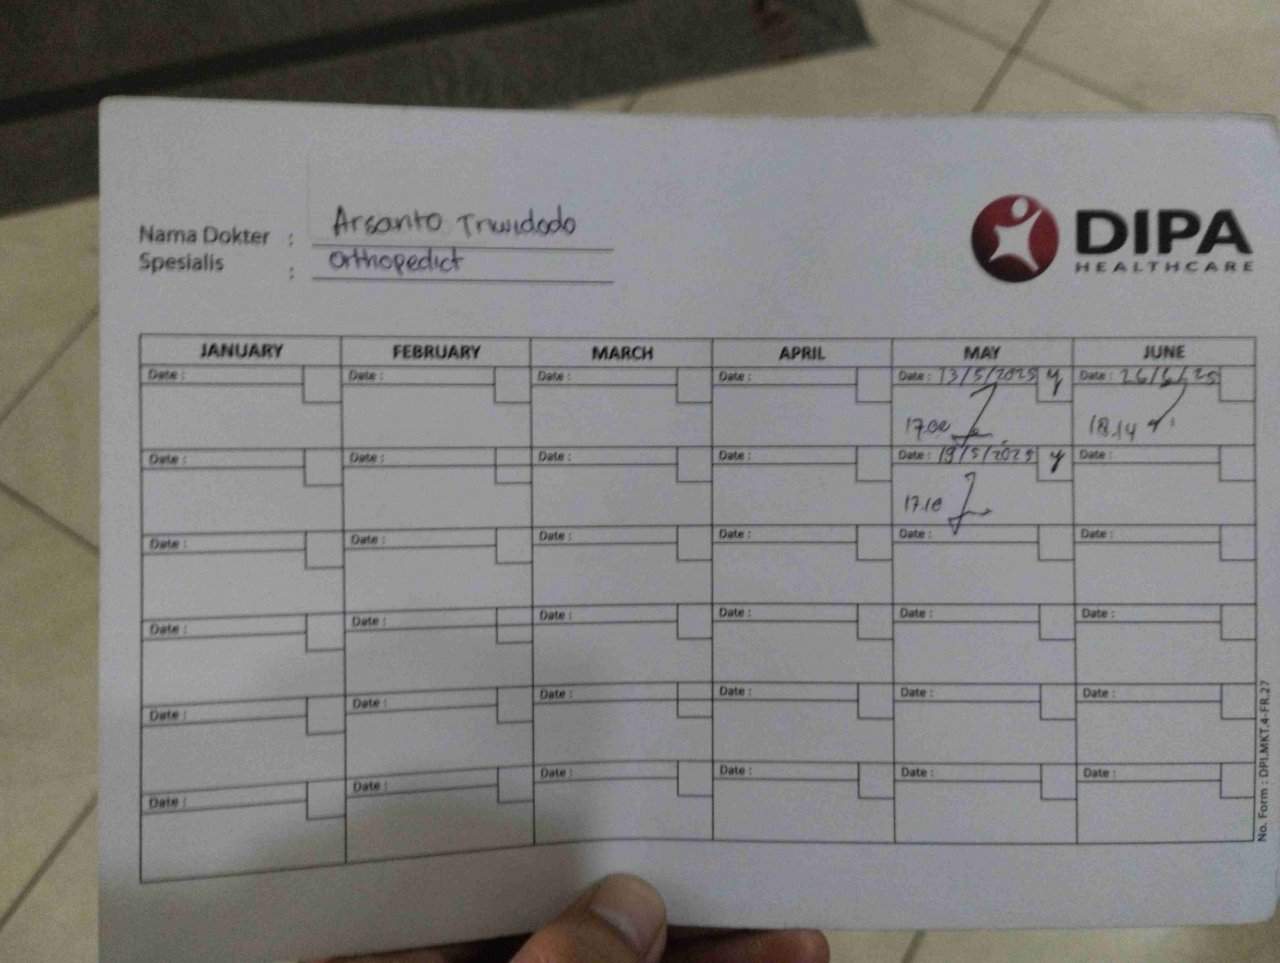 Nama Dokter : Arsanto Triwidodo
Spesialis : Orthopedict
DIPA
HEALTHCARE
JANUARY FEBRUARY MARCH APRIL MAY JUNE
Date : Date : Date : Date : Date : 13/5/2025 y Date : 26/6/25
17.00 18.14
Date : Date : Date : Date : Date : 19/5/2025 y Date :
17.10
Date : Date : Date : Date : Date : Date :
Date : Date : Date : Date : Date : Date :
Date : Date : Date : Date : Date : Date :
Date : Date : Date : Date : Date : Date :
No. Form : DPI.MKT.4-FR.27